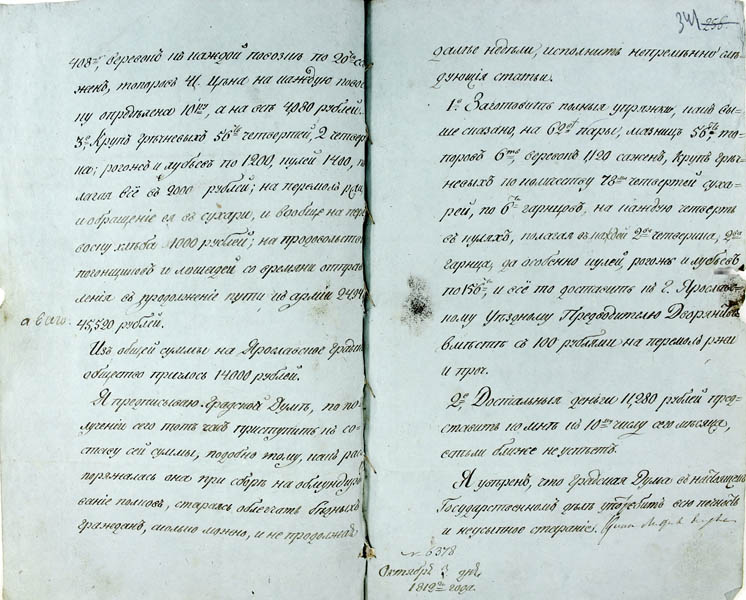 веревокъ на каждой повозкѣ по 20ти са-
женъ, топоровъ 4. Цѣна на каждую повоз-
ку опредѣлена 10 а на всѣ 4080 рублей.
3е Крупъ грѣчневыхъ 56ть четвертей, 2 четвери-
ка; рогожъ и лубьевъ по 1200, кулей 1400, по-
лагая всё въ 2000 рублей; на перемолъ ржи
и обращеніе ея въ сухари, и вообще на пере-
возку хлѣба 4000 рублей; на продовольствіе
погонщиковъ и лошадей со времяни отправ-
ленія въ продолженіе пути къ арміи 2494
а всего
45,520 рублей.
Изъ общей суммы на Ярославское Градское
общество пришлось 14000 рублей.
Я предписываю Градской Думѣ, по по-
лученіи сего тотъ часъ приступить къ со-
ставу сей суммы, подобно тому, какъ рас-
поряжалась она при сборѣ на обмундиро-
ваніе полковъ, стараясь облегчать бѣдныхъ
гражданъ, сколько можно, и не продолжая
341 256.
далѣе недѣли, исполнить непремѣнно слѣ-
дующія статьи.
1е Заготовить полныя упряжки, какъ вы-
ше сказано, на 62 пары, мазницъ 56ть то-
поровъ 6ть, веревокъ 1120 саженъ, Крупъ грѣч-
невыхъ по количеству четвертей суха-
рей, по 6ти гарнцовъ, на каждую четверть
въ куляхъ, полагая въ каждой 2ва четверика, 2ва
гарнца, да особенно кулей, рогожъ и лубьевъ
по и всё то доставить къ Г. Ярослав-
скому Уѣздному Предводителю Дворянства
вмѣстѣ съ 100 рублями на перемолъ ржи
и проч.
2е Достальныя деньги 11,280 рублей пред-
ставить ко мнѣ къ 10му числу сего мѣсяца,
естьли ближе не успѣетъ.
Я увѣренъ, что Градская Дума въ настоящемъ
Государственномъ дѣлѣ употребитъ всю ревность
и неусыпное стараніе.
№ 6378
Октября дня
1812го года.